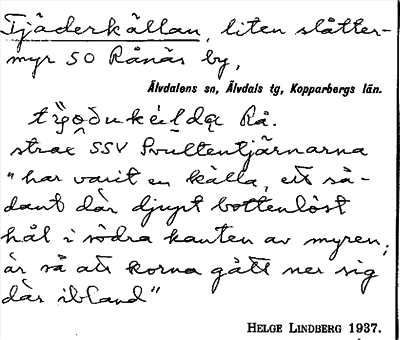 Tjäderkällan, liten slåtter-
myr SO Rånäs by,
Älvdalens sn, Älvdals tg, Kopparbergs län.
Rå.
strax SSV Svultentjärnarna
"har varit en källa, ett så-
dant där djupt bottenlöst
hål i södra kanten av myren;
är så att korna gått ner sig
där ibland"
HELGE LINDBERG 1937.